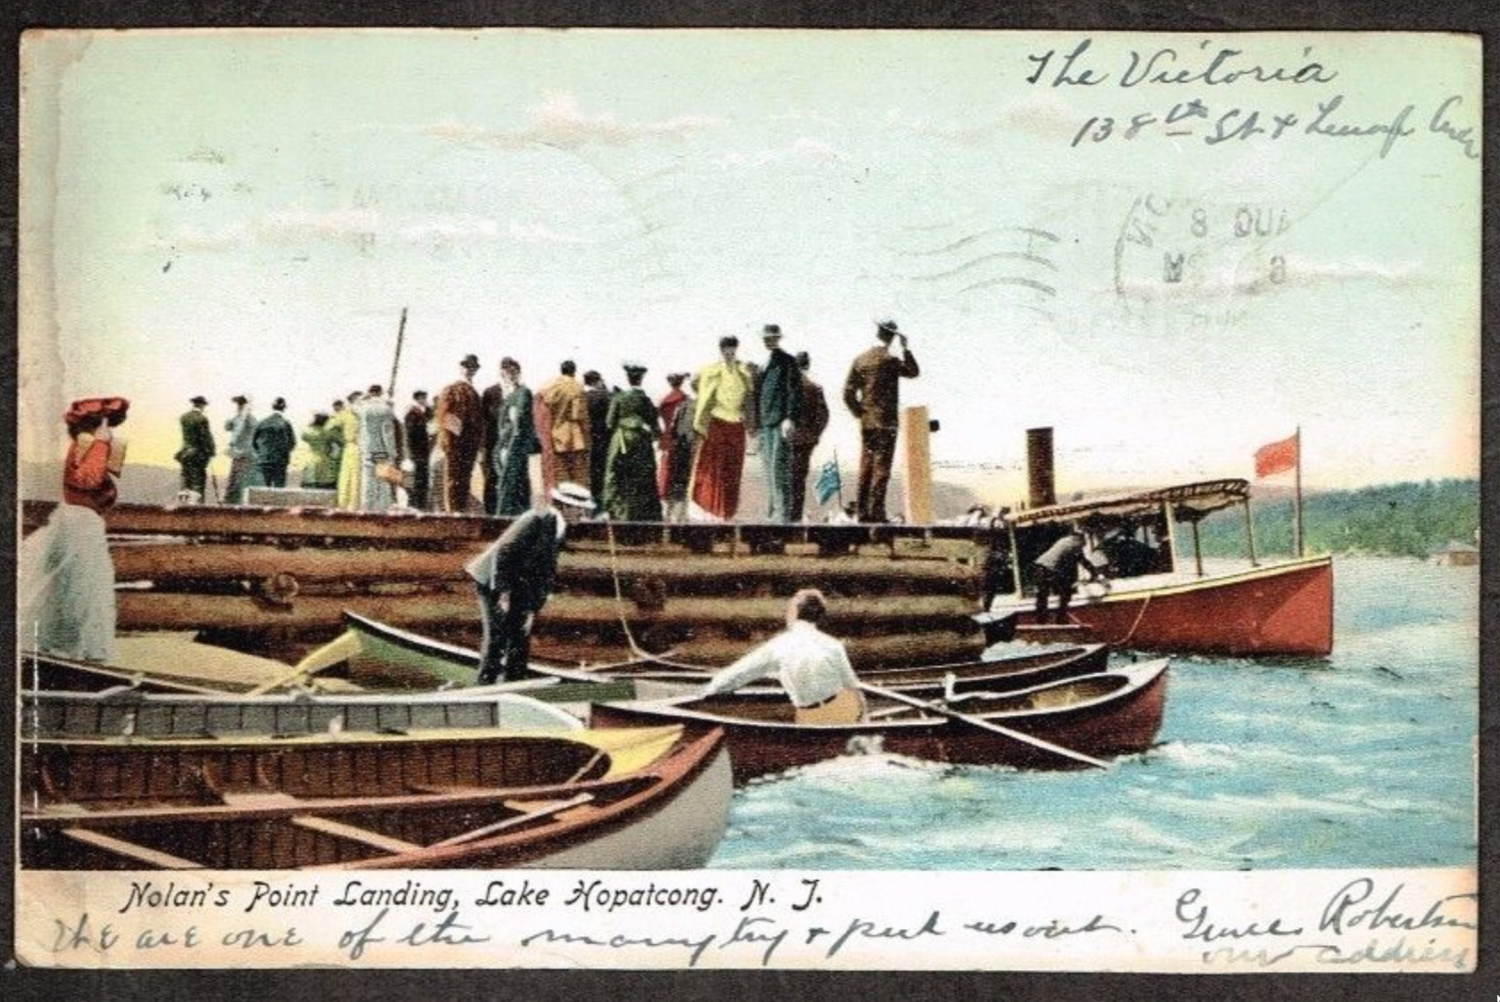 The Victoria
138th St & Lenox Ave
8 
Nolan's Point Landing, Lake Hopatcong. N. J.
We are one of the many try & pick us out.
Grace Robertson
our address